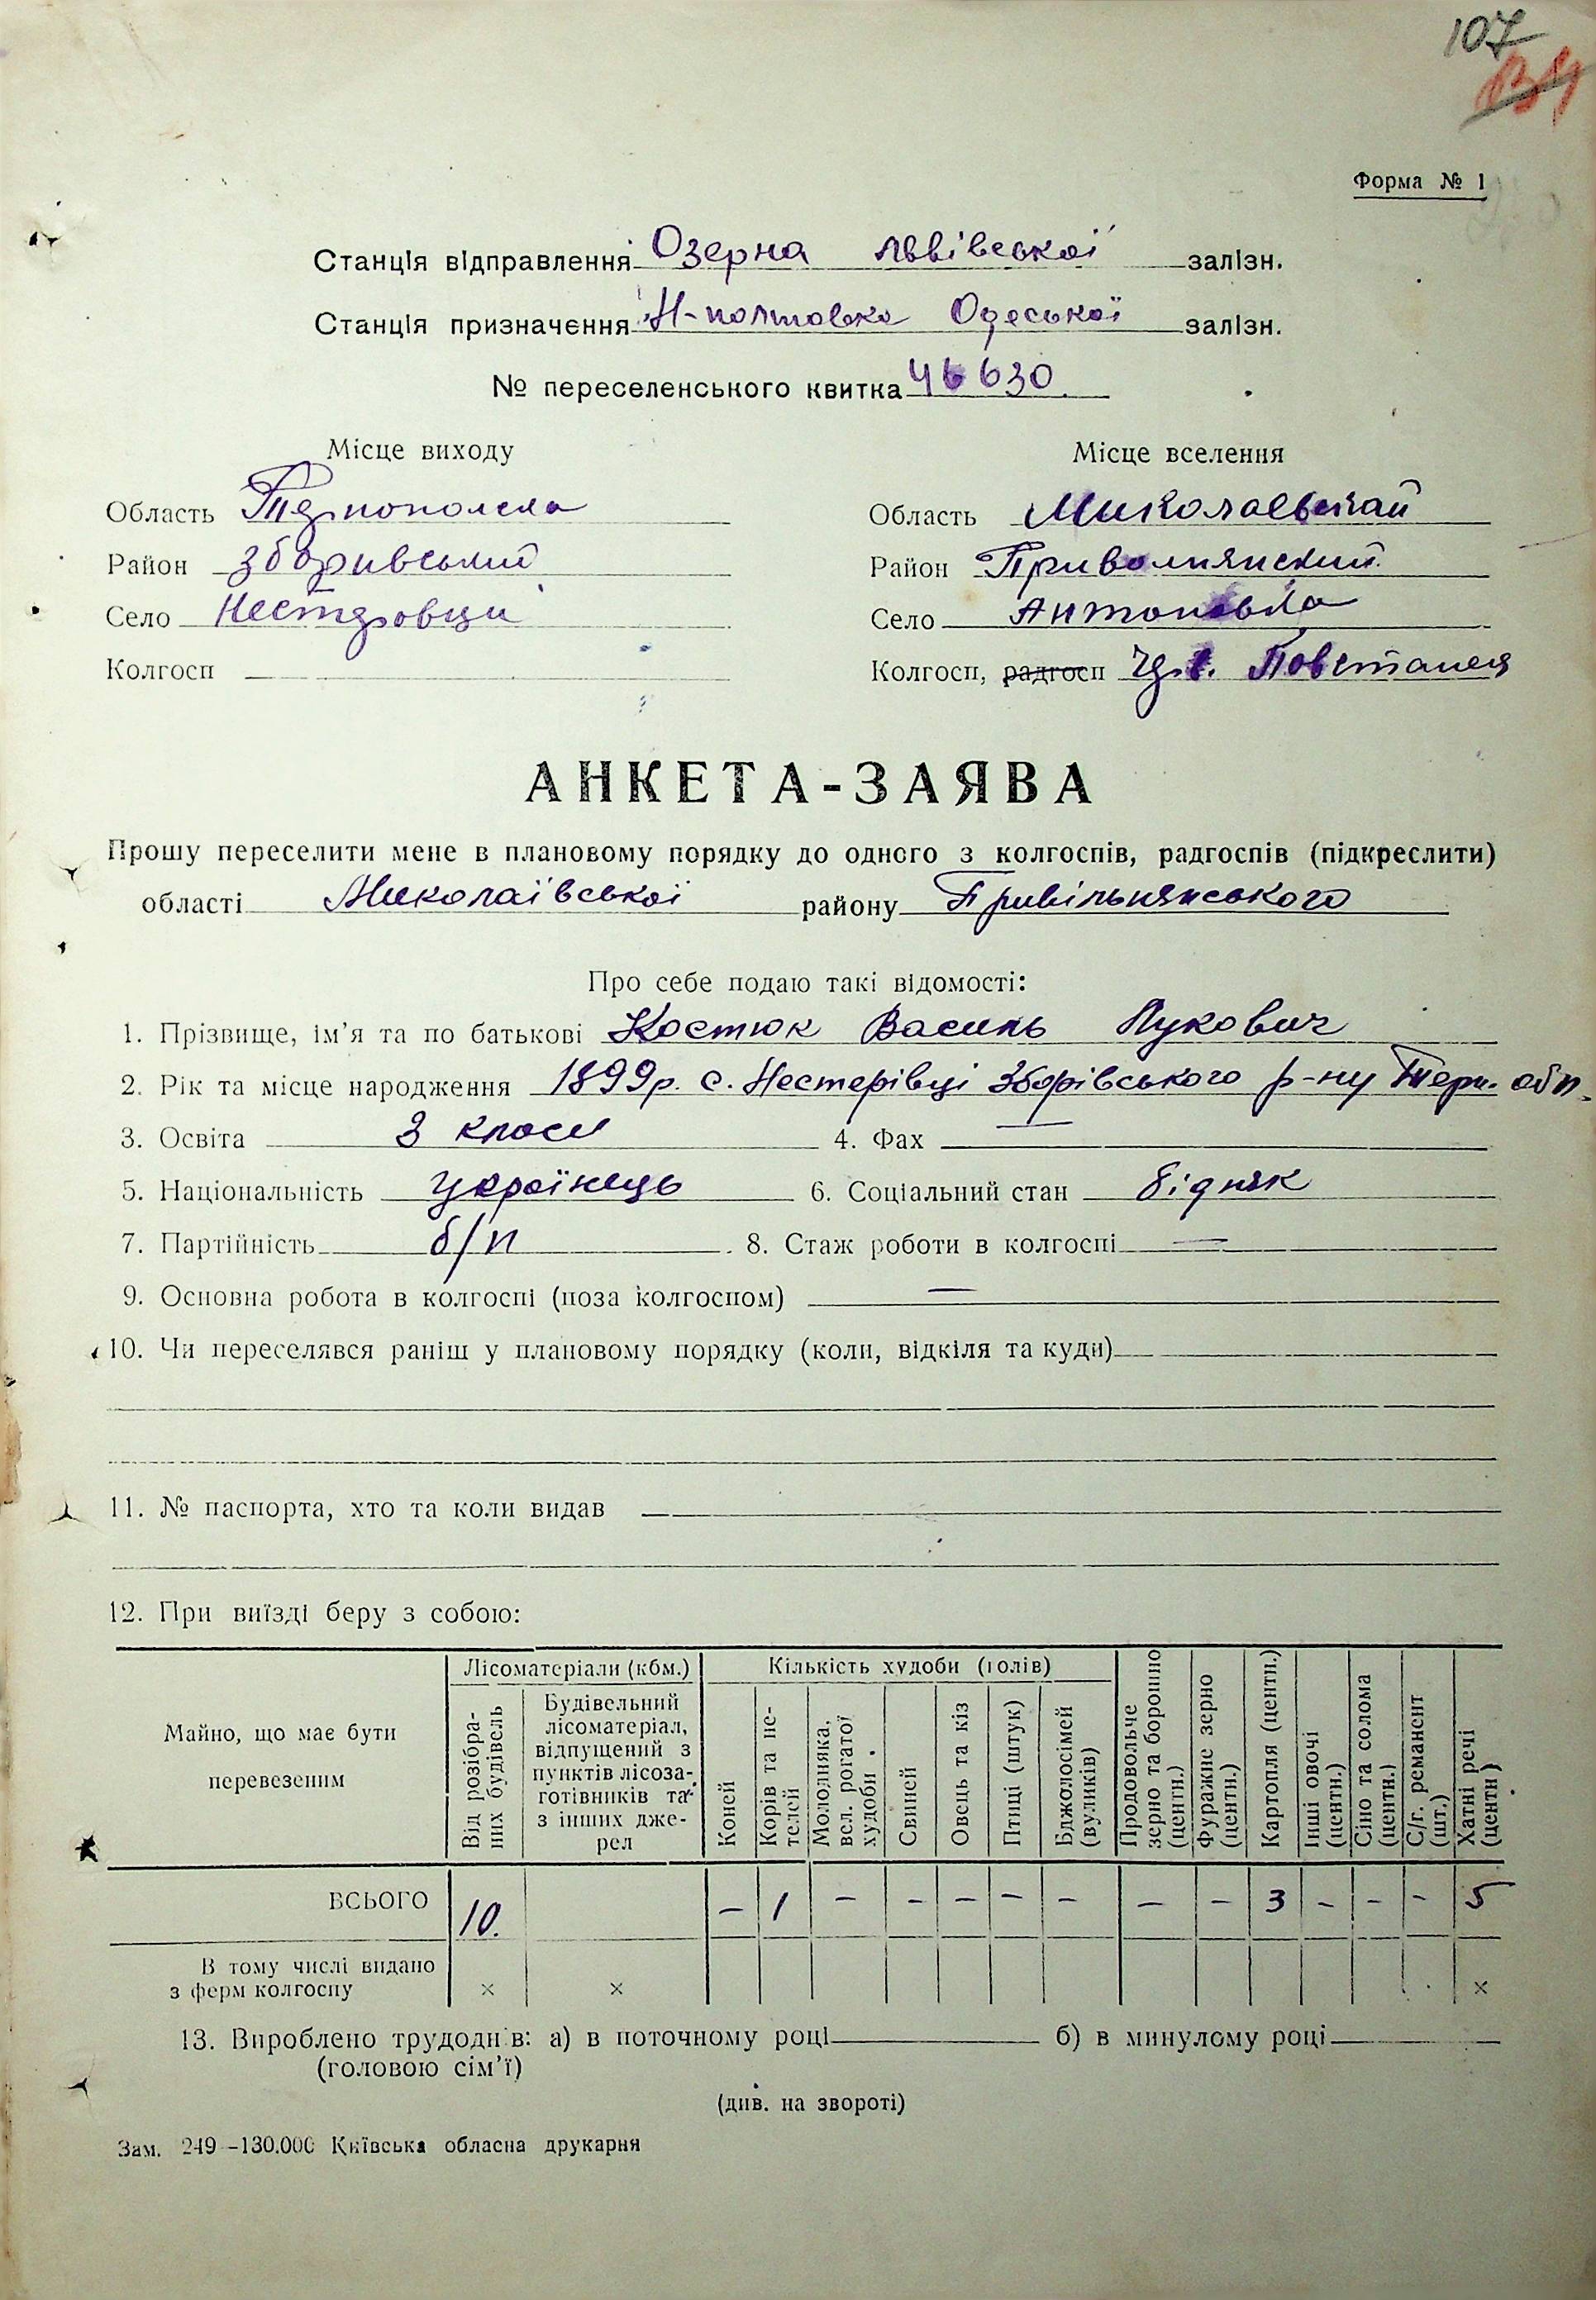 107
134
Форма № 1
Станція відправлення Озерна Львівської залізн.
Станція призначення Н-полтовка Одеської залізн.
№ переселенського квитка 46630
Місце виходу
Місце вселення
Область Тернопольска
Область Миколаевская
Район Зборивський
Район Приволнянский
Село Нестеровци
Село Антоновка
Колгосп
Колгосп, радгосп Повстанея
АНКЕТА-ЗАЯВА
Прошу переселити мене в плановому порядку до одного з колгоспів, радгоспів (підкреслити)
області Миколаївської району Привільнянського
Про себе подаю такі відомості:
1. Прізвище, ім'я та по батькові Костюк Василь Лукович
2. Рік та місце народження 1899р. с. Нестерівці Зборівського р-ну Терн. обл.
3. Освіта 3 класи 4. Фах —
5. Національність українець 6. Соціальний стан бідняк
7. Партійність б/п 8. Стаж роботи в колгоспі —
9. Основна робота в колгоспі (поза колгоспом) —
10. Чи переселявся раніш у плановому порядку (коли, відкіля та куди)
11. № паспорта, хто та коли видав
12. При виїзді беру з собою:
Майно, що має бути перевезеним
Лісоматеріали (кбм.)
Кількість худоби (голів)
Від розібраних будівель
Будівельний лісоматеріал, відпущений з пунктів лісозаготівників та з інших джерел
Коней
Корів та нетелей
Молодняка, вел. рогатої худоби
Свиней
Овець та кіз
Птиці (штук)
Бджолосімей (вуликів)
Продовольче зерно та борошно (центн.)
Фуражне зерно (центн.)
Картопля (центн.)
Інші овочі (центн.)
Сіно та солома (центн.)
С/г. реманент (шт.)
Хатні речі (центн)
ВСЬОГО 10. – 1 – – – – – – – 3 – – – 5
В тому числі видано
з ферм колгоспу × × ×
13. Вироблено трудоднів: а) в поточному році б) в минулому році
(головою сім'ї)
(див. на звороті)
Зам. 249–130.000 Київська обласна друкарня